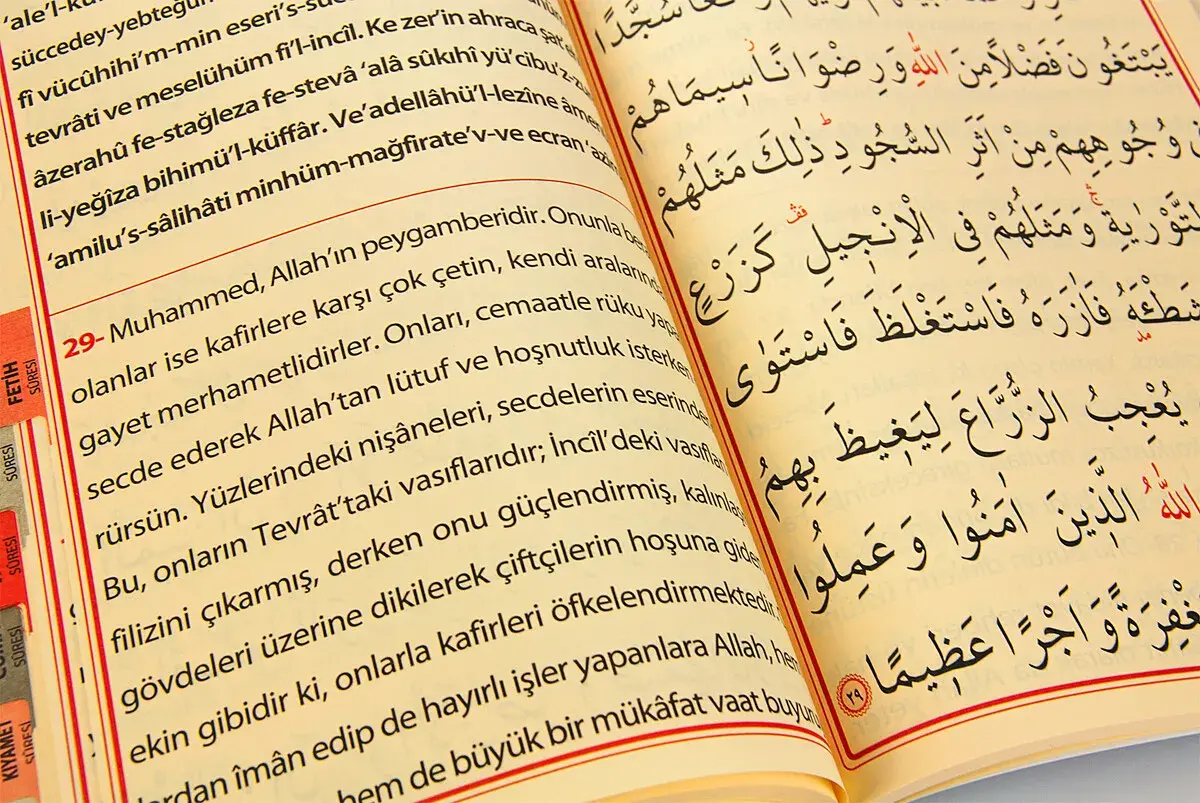 'ale'l-kü
süccedey-yebteğûn
fî vücûhihi'm-min eseri's-sü
tevrâti ve meselühüm fi'l-incîl. Ke zer'in ahraca şat'e
âzerahû fe-stağleza fe-stevâ 'alâ sûkıhî yü'cibu'z-zü
li-yeğîza bihimü'l-küffâr. Ve'adellâhü'l-lezîne âmen
'amilu's-sâlihâti minhüm-mağfirate'v-ve ecran 'azî
29- Muhammed, Allah'ın peygamberidir. Onunla be
olanlar ise kafirlere karşı çok çetin, kendi aralarında
gayet merhametlidirler. Onları, cemaatle rüku yapa
secde ederek Allah'tan lütuf ve hoşnutluk isterken
rürsün. Yüzlerindeki nişâneleri, secdelerin eserinde
Bu, onların Tevrât'taki vasıflarıdır; İncîl'deki vasıfla
filizini çıkarmış, derken onu güçlendirmiş, kalınlaş
gövdeleri üzerine dikilerek çiftçilerin hoşuna gide
ekin gibidir ki, onlarla kafirleri öfkelendirmektedir.
lardan îmân edip de hayırlı işler yapanlara Allah, hem
hem de büyük bir mükâfat vaat buyuru
FETİH
SÛRESİ
SÛRESİ
SÛRESİ
SÛRESİ
KIYAMET
SÛRESİ
سُجَّدًا
يَبْتَغُونَ فَضْلًا مِنَ اللّٰهِ وَرِضْوَانًا سِيمَاهُمْ
وُجُوهِهِمْ مِنْ اَثَرِ السُّجُودِ ذٰلِكَ مَثَلُهُمْ
التَّوْرٰيةِ وَمَثَلُهُمْ فِي الْاِنْجٖيلِ كَزَرْعٍ
شَطْـَٔهُ فَاٰزَرَهُ فَاسْتَغْلَظَ فَاسْتَوٰى
يُعْجِبُ الزُّرَّاعَ لِيَغٖيظَ بِهِمُ
اللّٰهُ الَّذٖينَ اٰمَنُوا وَعَمِلُوا
مَغْفِرَةً وَاَجْرًا عَظٖيمًا ٢٩